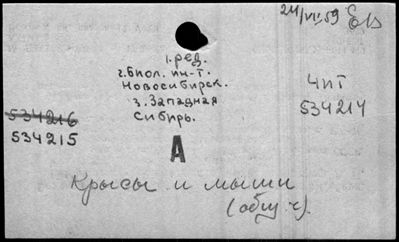 24/VII.59
1.ред.
2.биол. ин-т.
Новосибирск.
3.Западная
Сибирь.
чит
534217
534216
534215
А
Крысы и мыши
(общ.ч).